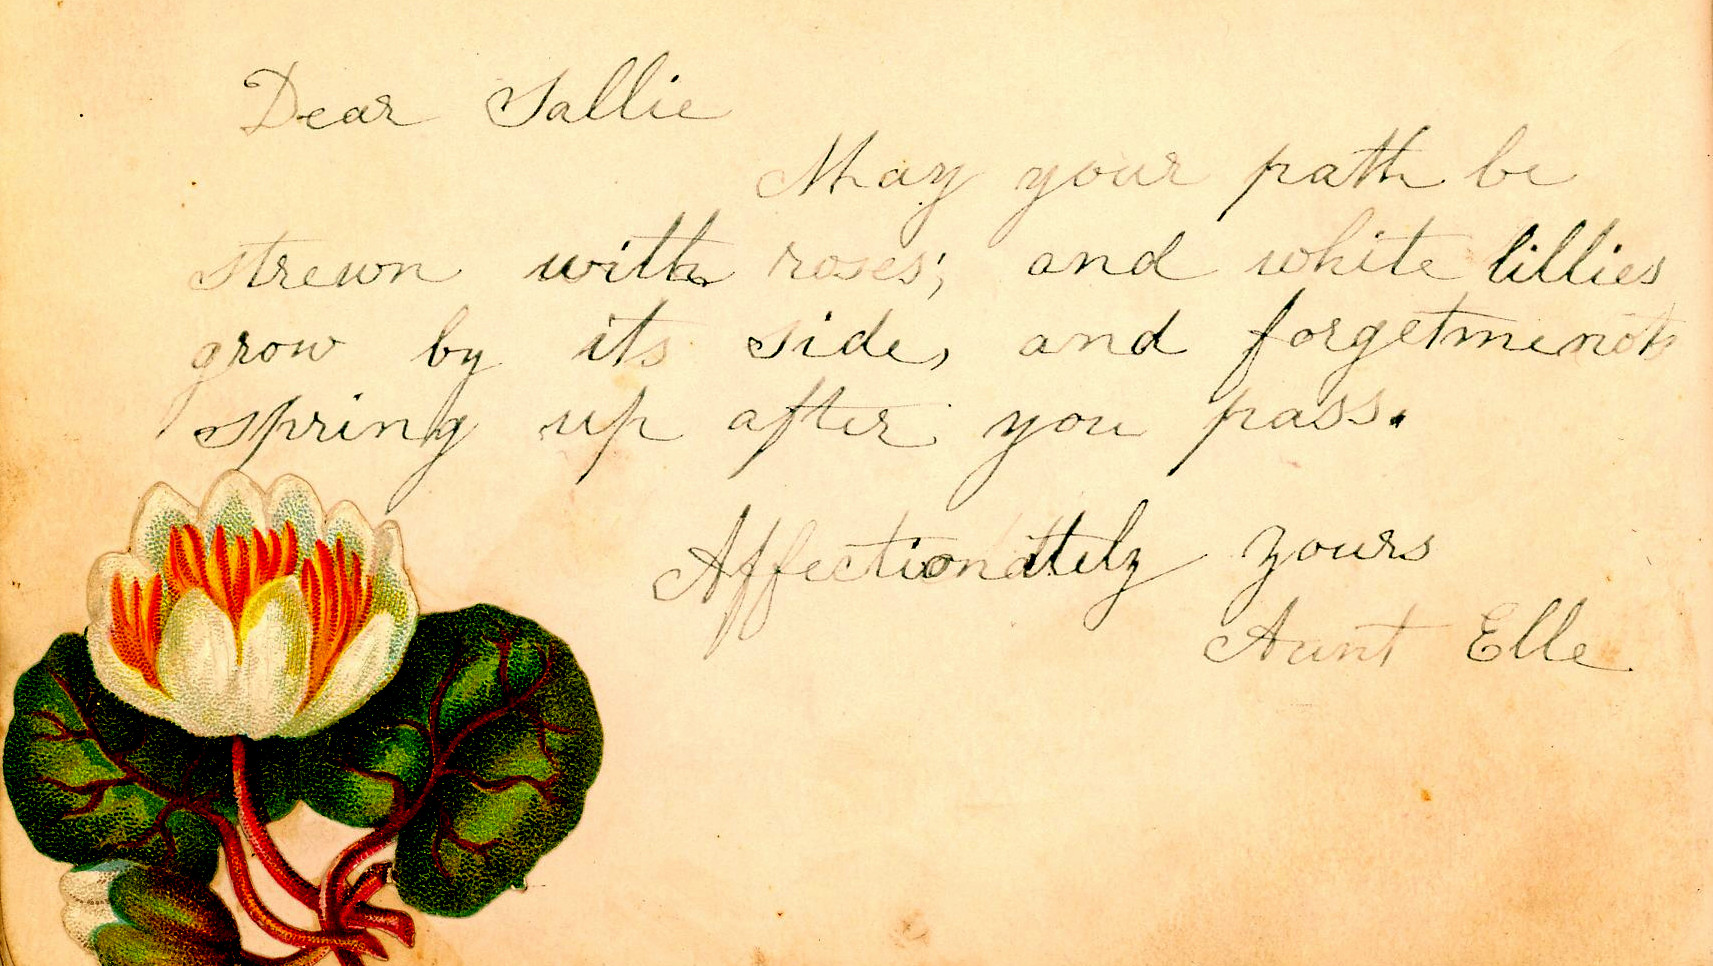 Dear Sallie
May your path be
strewn with roses; and white lillies
grow by its side, and forgetmenots
spring up after you pass.
Affectionately yours
Aunt Elle